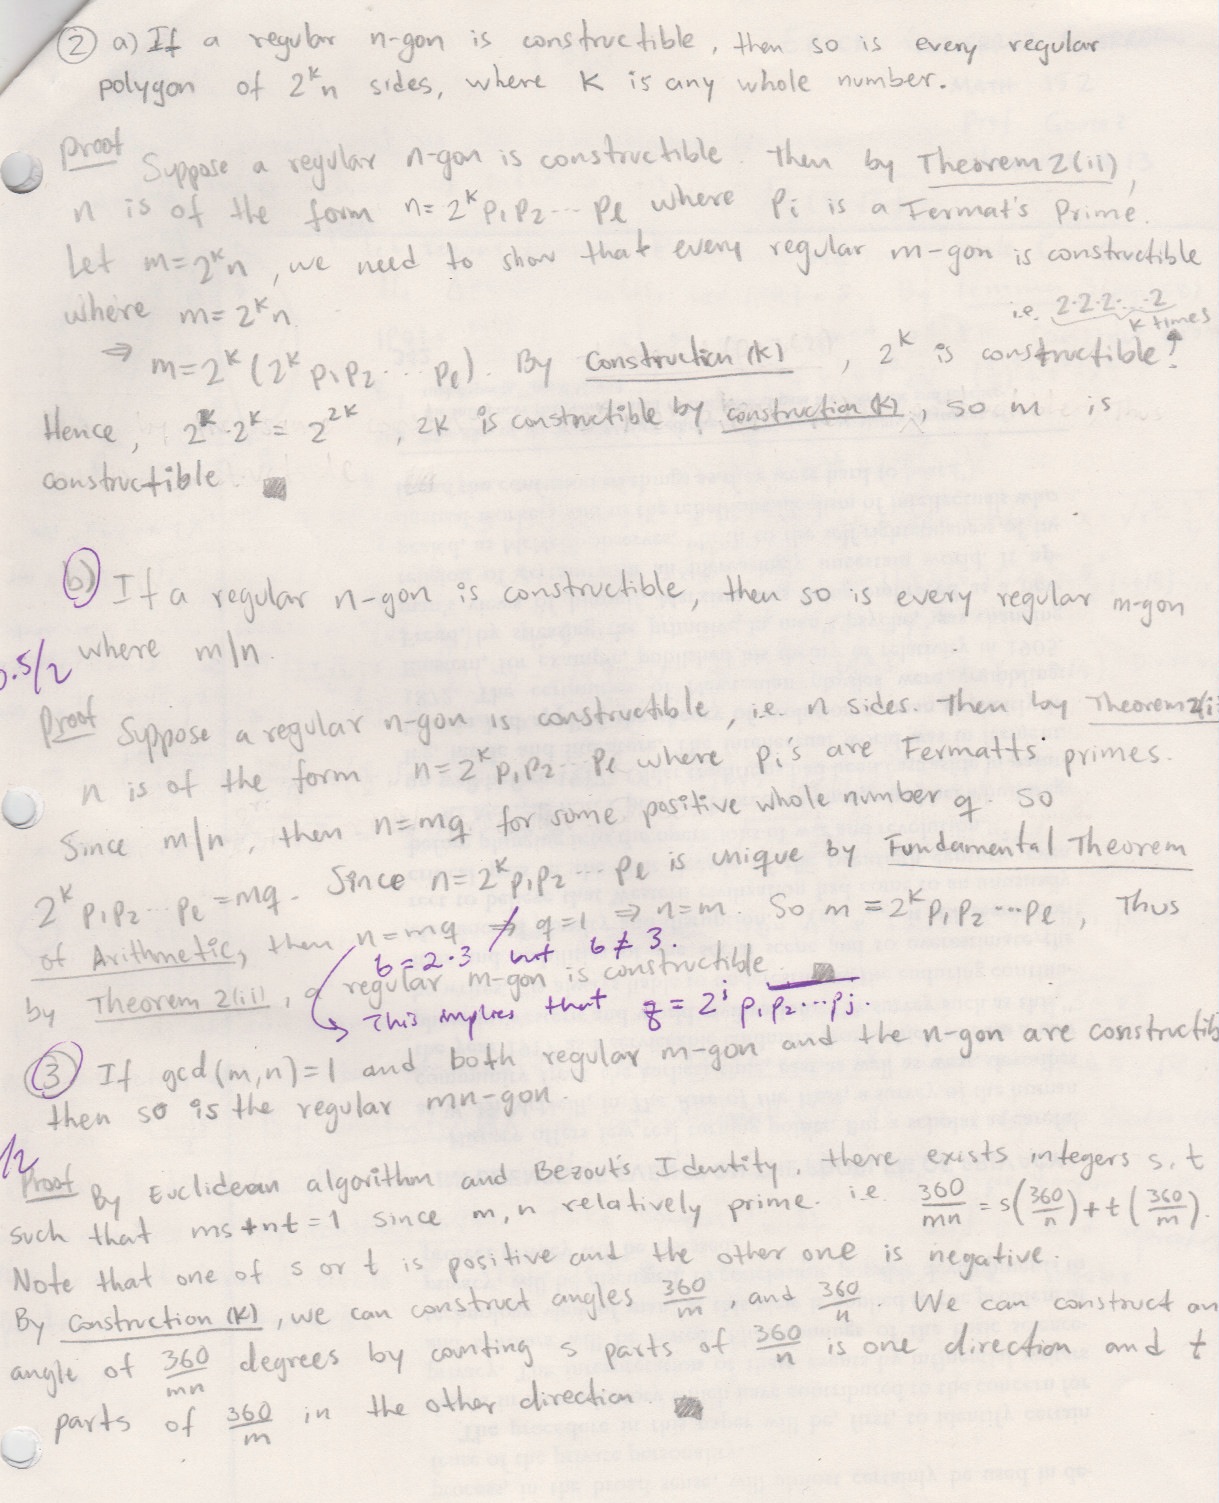 ② a) If a regular n-gon is constructible, then so is every regular
polygon of 2^k n sides, where k is any whole number.
Proof Suppose a regular n-gon is constructible. Then by Theorem 2(ii),
n is of the form n = 2^k p1 p2 ... pl where pi is a Fermat's Prime.
Let m = 2^k n, we need to show that every regular m-gon is constructible
where m = 2^k n.
i.e. 2·2·2·...·2
k times
⇒ m = 2^k (2^k p1 p2 ... pl). By Construction (K), 2^k is constructible!
Hence, 2^k · 2^k = 2^2k, 2k is constructible by construction (K), so m is
constructible. ■
b) If a regular n-gon is constructible, then so is every regular m-gon
where m|n.
0.5/2
Proof Suppose a regular n-gon is constructible, i.e. n sides. Then by Theorem 2(ii
n is of the form n = 2^k p1 p2 ... pl where pi's are Fermatts primes.
Since m|n, then n = mq for some positive whole number q. So
2^k p1 p2 ... pl = mq. Since n = 2^k p1 p2 ... pl is unique by Fundamental Theorem
of Arithmetic, then n = mq ⇒ q = 1 ⇒ n = m. So m = 2^k p1 p2 ... pl, Thus
6 = 2·3 but 6 ≠ 3.
by Theorem 2(ii), a regular m-gon is constructible. ■
This implies that q = 2^j p1 p2 ... pj.
③ If gcd(m,n) = 1 and both regular m-gon and the n-gon are constructib
then so is the regular mn-gon.
/2
Proof By Euclidean algorithm and Bezout's Identity, there exists integers s, t
such that ms + nt = 1 since m, n relatively prime. i.e. 360/mn = s(360/n) + t(360/m).
Note that one of s or t is positive and the other one is negative.
By Construction (K), we can construct angles 360/m, and 360/n. We can construct an
angle of 360/mn degrees by counting s parts of 360/n is one direction and t
parts of 360/m in the other direction. ■